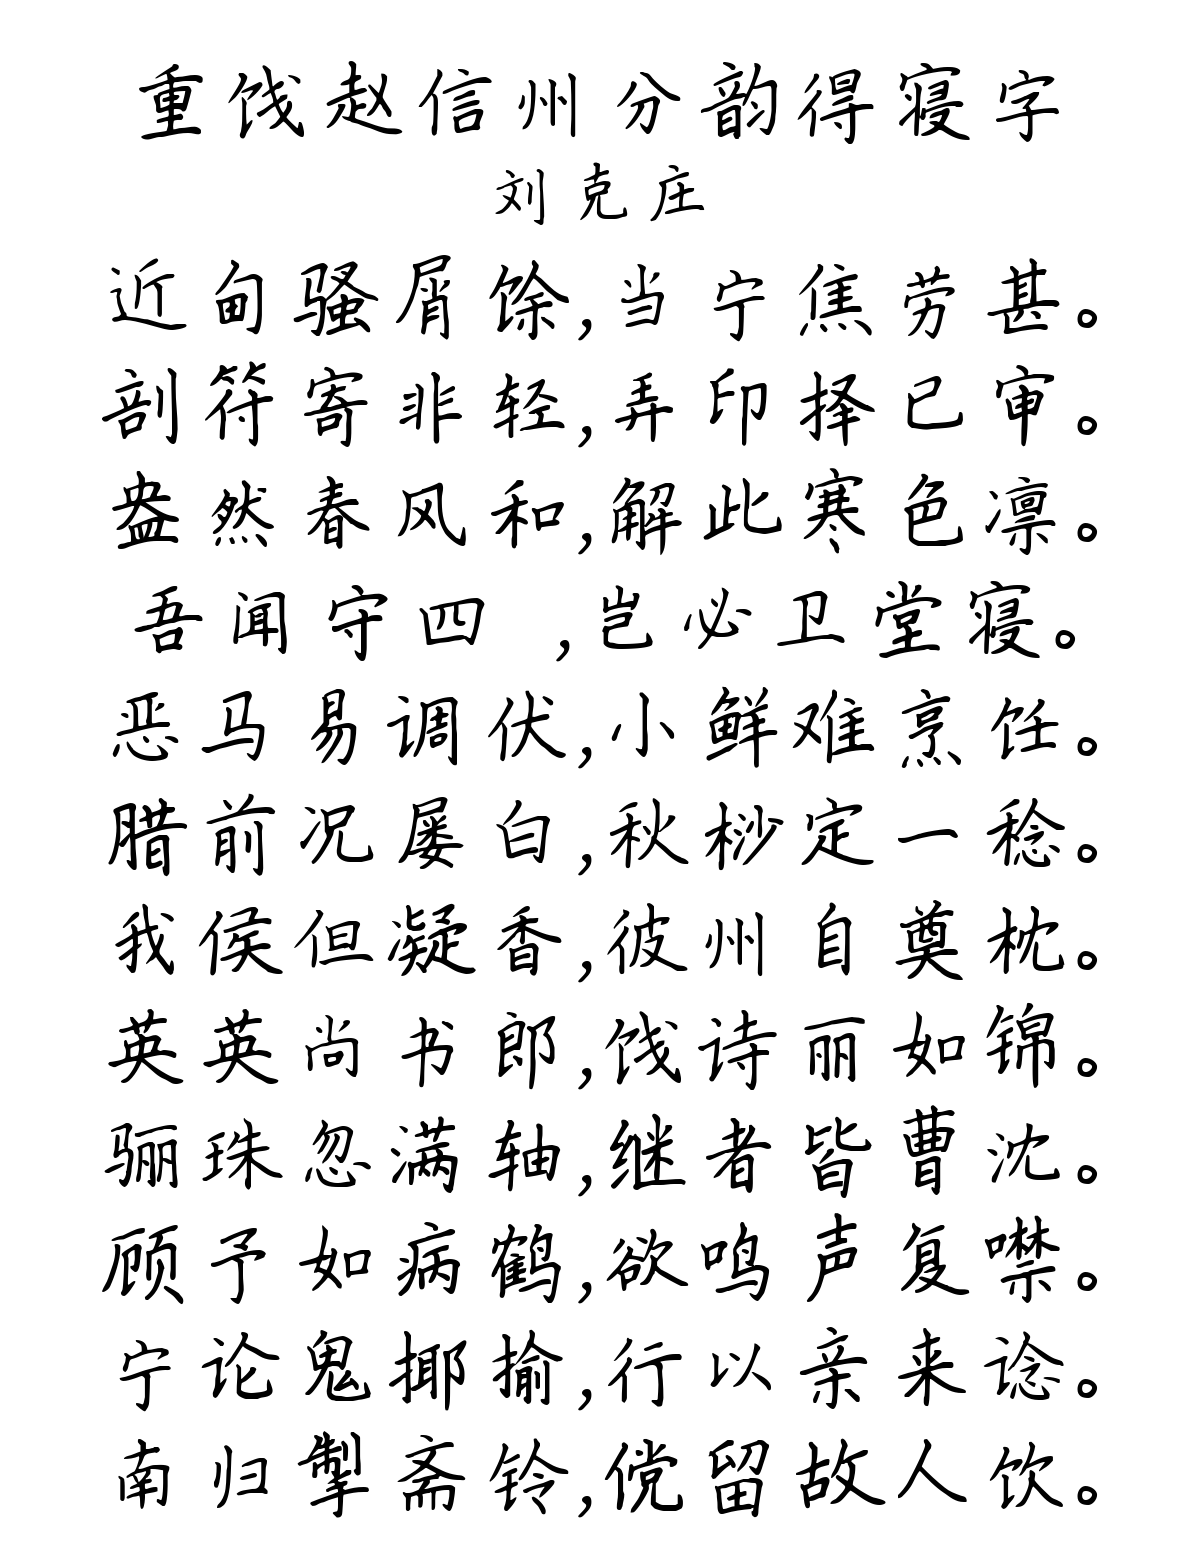 重饯赵信州分韵得寝字
刘克庄
近甸骚屑馀,当宁焦劳甚。
剖符寄非轻,弄印择已审。
盎然春风和,解此寒色凛。
吾闻守四 ,岂必卫堂寝。
恶马易调伏,小鲜难烹饪。
腊前况屡白,秋桫定一稔。
我侯但凝香,彼州自奠枕。
英英尚书郎,饯诗丽如锦。
骊珠忽满轴,继者皆曹沈。
顾予如病鹤,欲鸣声复噤。
宁论鬼揶揄,行以亲来谂。
南归掣斋铃,傥留故人饮。